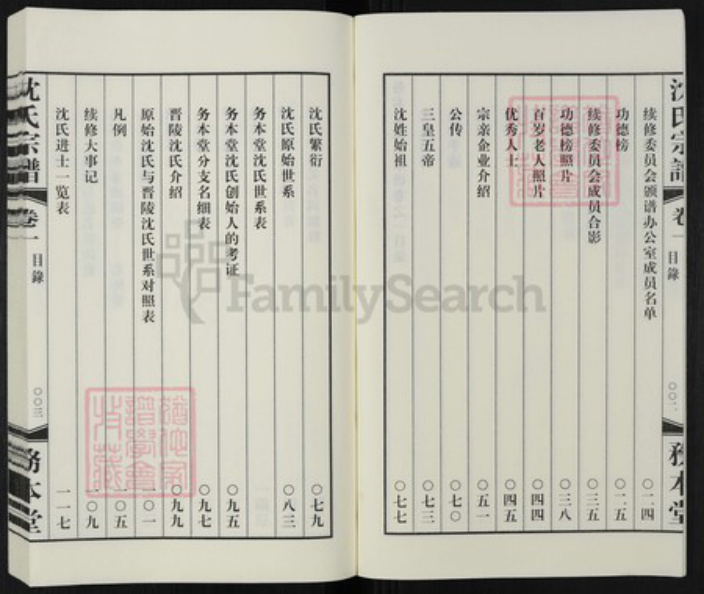 沈氏宗譜 卷一 目錄 〇〇二 務本堂
续修委员会颁谱办公室成员名单 〇二四
功德榜 〇二五
续修委员会成员合影 〇三五
功德榜照片 〇三八
百岁老人照片 〇四四
优秀人士 〇四五
宗亲企业介绍 〇五一
公传 〇七〇
三皇五帝 〇七三
沈姓始祖 〇七七
沈氏繁衍 〇七九
沈氏原始世系 〇八三
务本堂沈氏世系表
务本堂沈氏创始人的考证 〇九五
务本堂分支名细表 〇九七
晋陵沈氏介绍 〇九九
原始沈氏与晋陵沈氏世系对照表 一〇一
凡例 一〇五
续修大事记 一〇九
沈氏进士一览表 一一七
沈氏宗譜 卷一 目錄 〇〇三 務本堂
FamilySearch